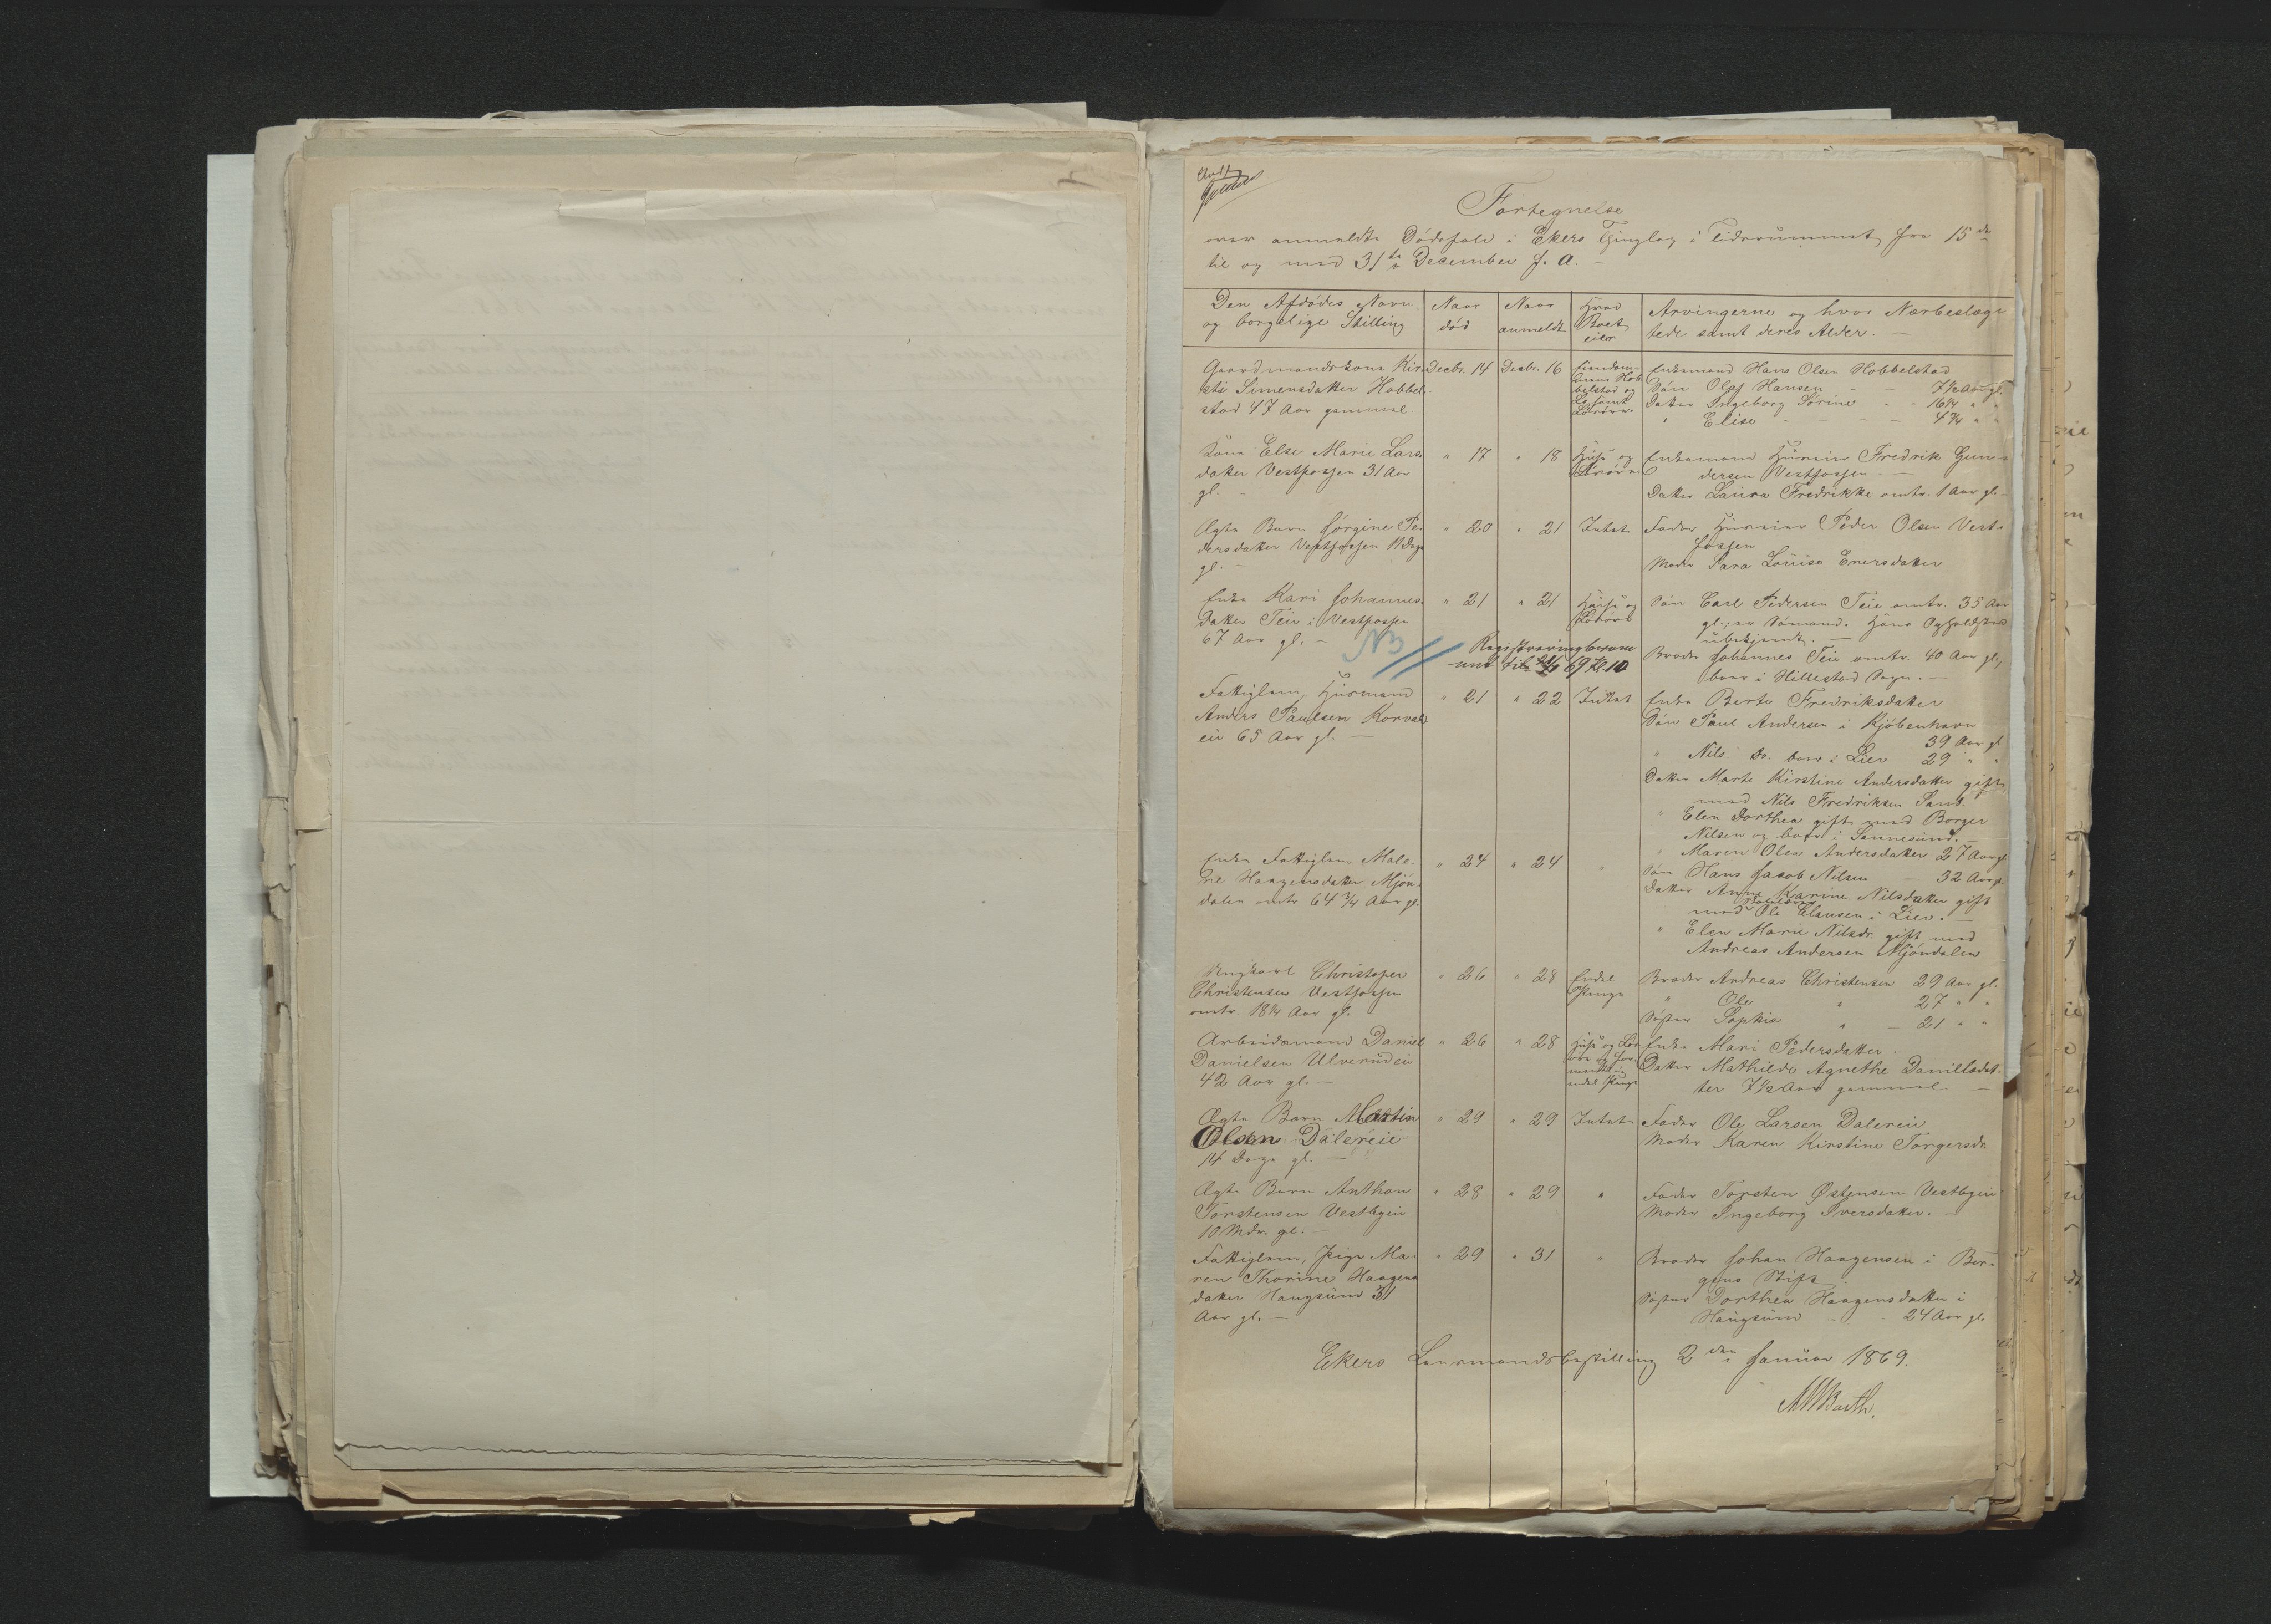 Fortegnelse
over anmeldte Dødsfald i Ekers Thinglag i Tidsrummet fra 15de
til og med 31te December f. A. –
Den Afdødes Navn og borgelige Stilling
Naar død
Naar anmeldt
Hvad Boet eier
Arvingerne og hvor Nærbeslægtede samt deres Alder. –
Gaardmandskone Kir-
sti Simensdatter Hobbel-
stad 47 Aar gammel.
Decbr. 14
Decbr. 16
Eiendom-
mene Hob
belstad og
Lo samt
Løsøre.
Enkemand Hans Olsen Hobbelstad
Søn Olaf Hansen – – 7½ Aar gl.
Datter Ingeborg Sørine – – 16¼ " "
" Elise – – – – 4¾ " "
Kone Else Marie Lars-
datter Vestfossen 31 Aar
gl. –
" 17
" 18
Huse og
Løsøre
Enkemand Huseier Fredrik Gun-
dersen Vestfossen –
Datter Laura Fredrikke omtr. 1 Aar gl. –
Ægte Barn Jørgine Pe-
dersdatter Vestfossen 11 Dage
gl. –
" 20
" 21
Intet
Fader Huseier Peder Olsen Vest-
fossen
Moder Sara Louise Enersdatter
Enke Kari Johannes-
datter Teie i Vestfossen
67 Aar gl. –
" 21
" 21
Huse og
Løsøre
Søn Carl Pedersen Teie omtr. 35 Aar
gl.; er Sømand. Hans Opholdsted
ubekjendt. –
Broder Johannes Teie omtr. 40 Aar gl.,
boer i Hillestad Sogn. –
NB
Registreringberam
met til 69 Kl. 10
Fattiglem, Husmand
Anders Paulsen Korvald
eie 65 Aar gl. –
" 21
" 22
Intet
Enke Berte Fredriksdatter
Søn Paul Andersen i Kjøbenhavn
39 Aar gl
" Nils Do. boer i Lier 29 " "
Datter Marte Kirstine Andersdatter gift
med Nils Fredriksen Sand.
" Elen Dorthea gift med Borger
Nilsen og boer i Sannesund. –
" Maren Olea Andersdatter 27 Aar gl.
Enke Fattiglem Male-
ne Haagensdatter Mjøn-
dalen omtr 64¾ Aar gl.
" 24
" 24
"
Søn Hans Jacob Nilsen – 32 Aar gl.
Datter Anne Karine Nilsdatter gift
med Ole Clausen i Lier. –
" Elen Marie Nilsdr. gift med
Andreas Andersen Mjøndalen
Ungkarl Christofer
Christensen Vestfossen
omtr. 18¼ Aar gl.
" 26
" 28
Endel
Penge
Broder Andreas Christensen 29 Aar gl.
" Ole " 27 " "
Søster Sophie " – 21 " "
Arbeidsmand Daniel
Danielsen Ulverudeie
42 Aar gl. –
" 26
" 28
Huse og Løs
øre og for-
mentlig
endel Penge
Enke Mari Pedersdatter.
Datter Mathilde Agnethe Danielsdat-
ter 7½ Aar gammel. –
Ægte Barn Martin
Olsen Dalereie
14 Dage gl. –
" 29
" 29
Intet
Fader Ole Larsen Dalereie
Moder Karen Kirstine Torgersdr.
Ægte Barn Anthon
Torstensen Vestbyeie
10 Mdr. gl. –
" 28
" 29
"
Fader Torsten Østensen Vestbyeie
Moder Ingeborg Iversdatter. –
Fattiglem, Pige Ma-
ren Thorine Haagens
datter Haugsund 31
Aar gl. –
" 29
" 31
"
Broder Johan Haagensen i Ber-
gens Stift
Søster Dorthea Haagensdatter i
Haugsund – – 24 Aar gl.
Ekers Lensmandsbestilling 2den Januar 1869.
MBarth.